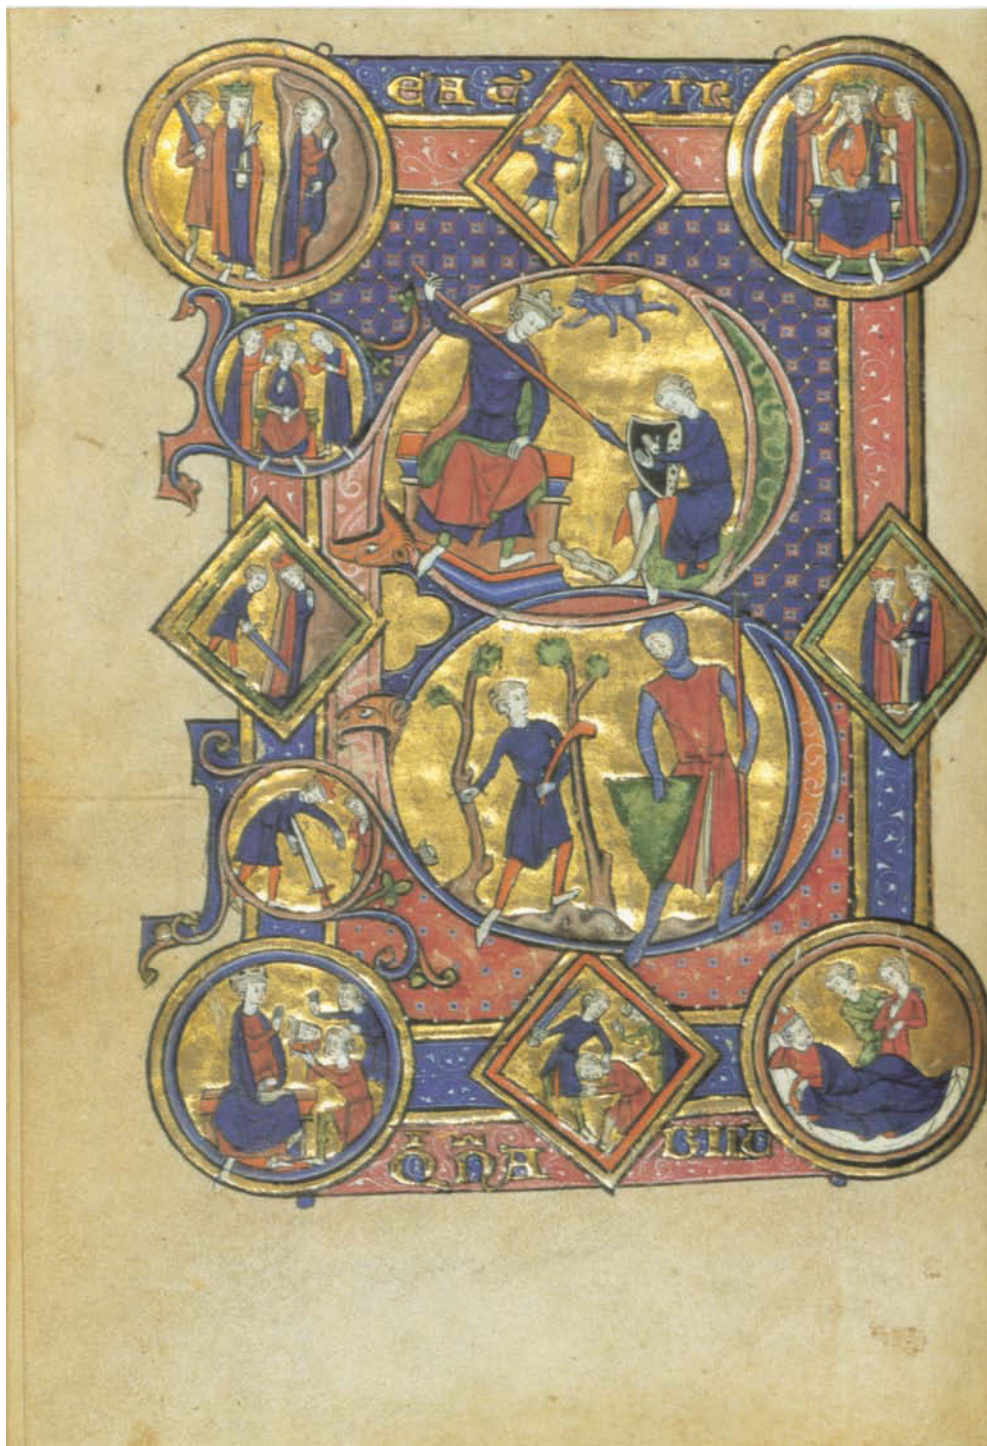 B
EAT̄ VIR
Q̄ N̄ A BIIT